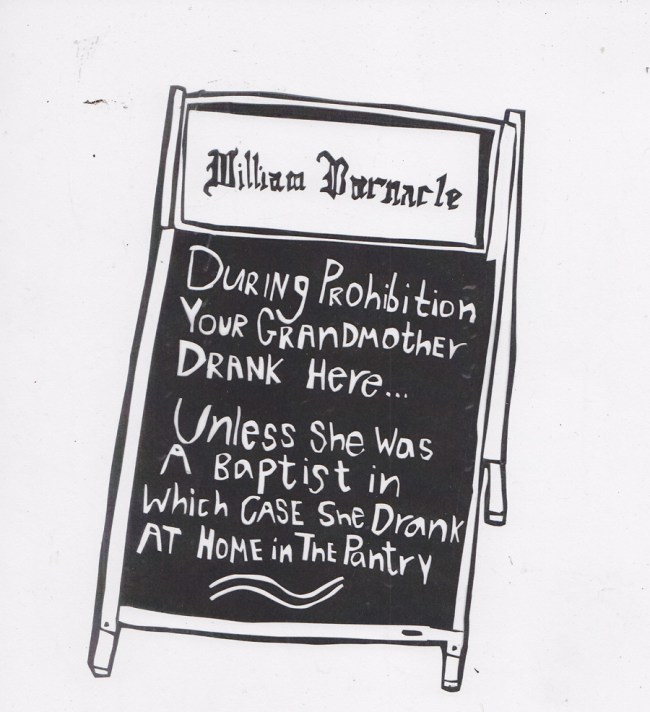 William Barnacle
During Prohibition
Your Grandmother
Drank Here...
Unless She Was
A Baptist in
Which Case She Drank
At Home in The Pantry